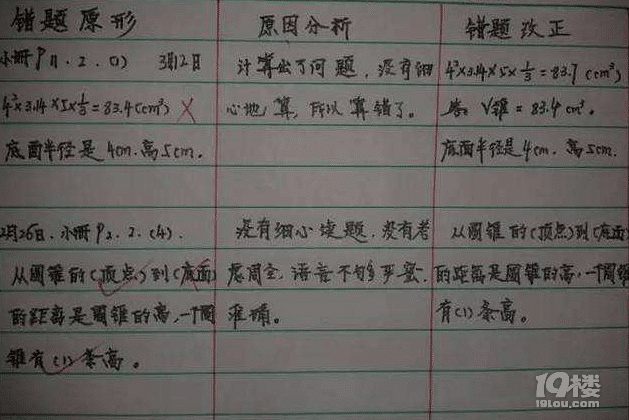 错题原形
小册P11.2.(1) 3月12日
4²×3.14×5×⅓=83.4(cm³) ×
底面半径是4cm.高5cm.
2月26日.小册P2.2.(4).
从圆锥的(顶点)到(底面)
的距离是圆锥的高,一个圆
锥有(1)条高。
原因分析
计算出了问题,没有细
心地算,所以算错了。
没有细心读题,没有考
虑周全,语言不够严密.
准确。
错题改正
4²×3.14×5×⅓=83.7(cm³)
答:V锥=83.4cm³.
底面半径是4cm.高5cm.
从圆锥的(顶点)到(底面
的距离是圆锥的高,一个圆锥
有(1)条高。
19楼
19lou.com